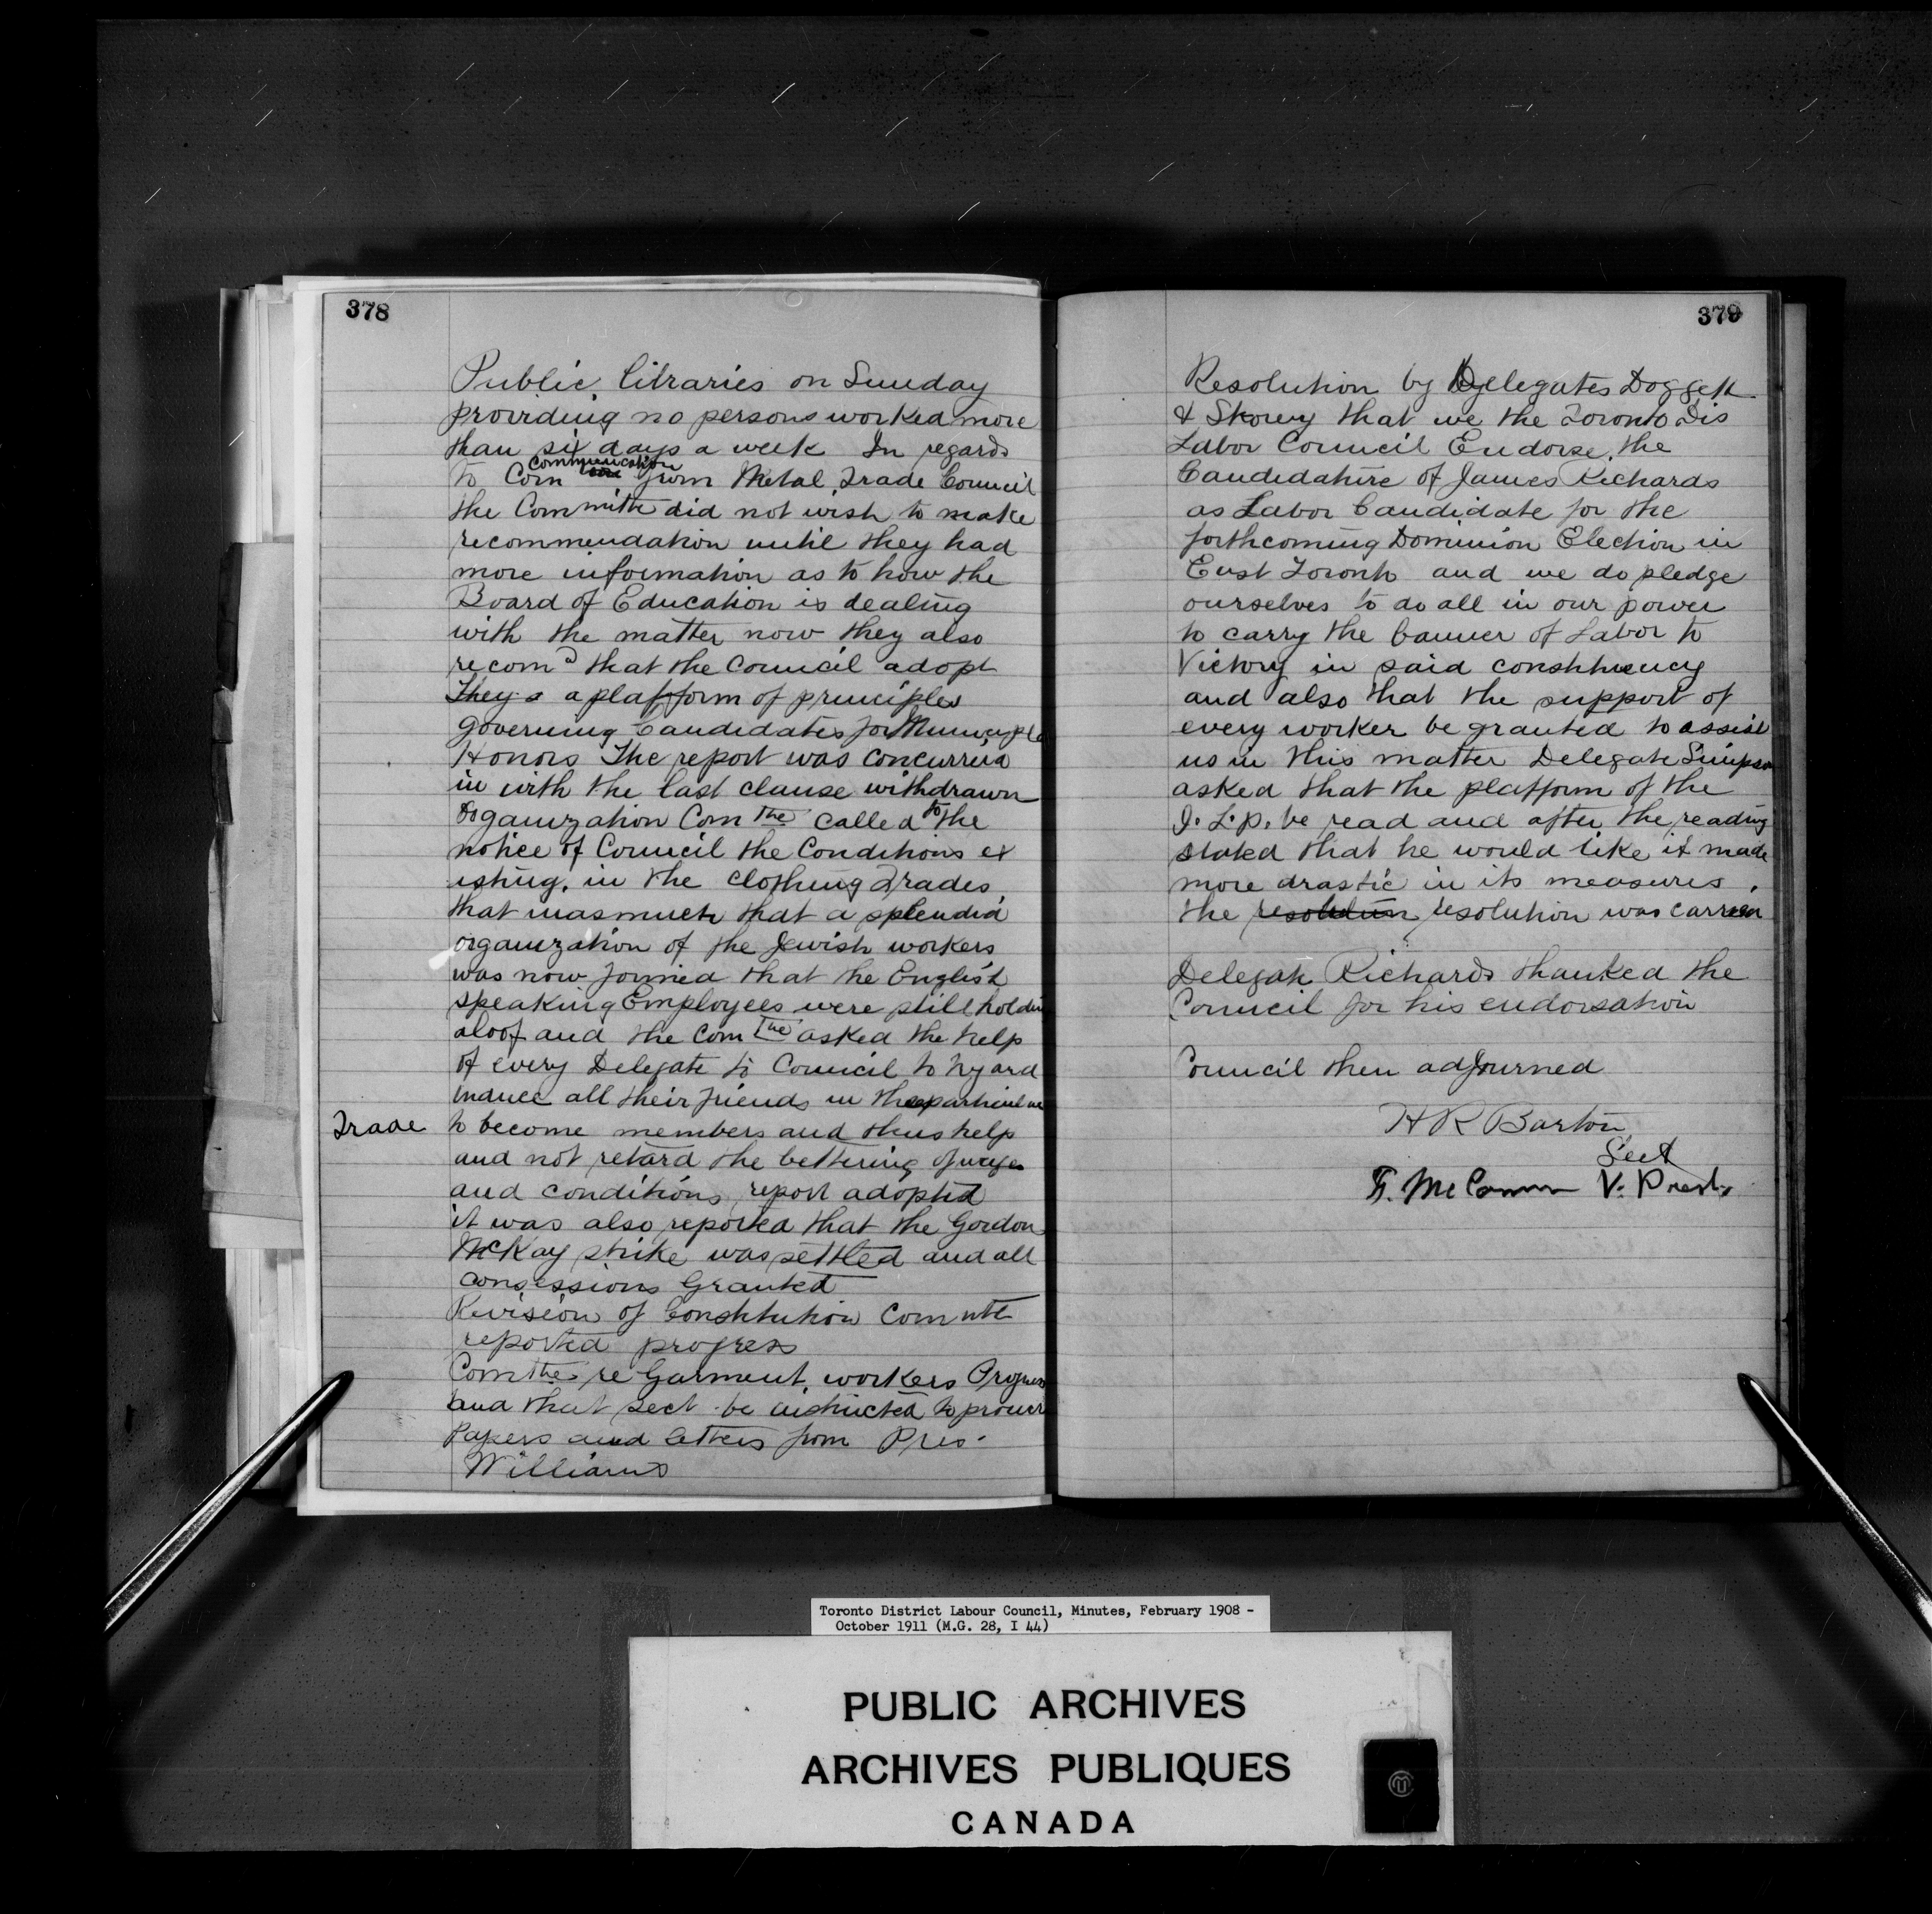 378
Public libraries on Sunday
providing no persons worked more
than six days a week In regards
communication
to Com from Metal Trade Council
the Committe did not wish to make
recommendation until they had
more information as to how the
Board of Education is dealing
with the matter now they also
recomd that the Council adopt
They a a platform of principles
governing Candidates for
Honors The report was concurred
in with the last clause withdrawn
Organization Comtte called to the
notice of Council the Conditions ex
isting in the clothing Trades
that inasmuch that a splendid
organization of the Jewish workers
was now formed that the English
speaking Employees were still holdin
aloof and the Comtte asked the help
of every Delegate to Council to try and
induce all their friends in
Trade to become members and thus help
and not retard the bettering of wages
and conditions report adopted
it was also reported that the Gordon
McKay strike was settled and all
consessions Granted
Revision of Constitution Comutte
reported progress
Comtte re Garment workers Progress
and that Sect be instructed to procur
Papers and letters from Pres.
Williams
379
Resolution by Delegates Doggett
& that we the Toronto Dis
Labor Council Endorse the
Candidature of James Richards
as Labor Candidate for the
forthcoming Dominion Election in
East Toronto and we do pledge
ourselves to do all in our power
to carry the banner of Labor to
Victory in said constituency
and also that the support of
every worker be granted to assist
us in this matter Delegate Simpson
asked that the platform of the
I. L. p. be read and after the reading
stated that he would like it made
more drastic in its measures.
the resolution resolution was carried
Delegate Richards thanked the
Council for his endorsation
Council then adjourned
H R Barton
Sect
V. Prest.
Toronto District Labour Council, Minutes, February 1908 -
October 1911 (M.G. 28, I 44)
PUBLIC ARCHIVES
ARCHIVES PUBLIQUES
CANADA